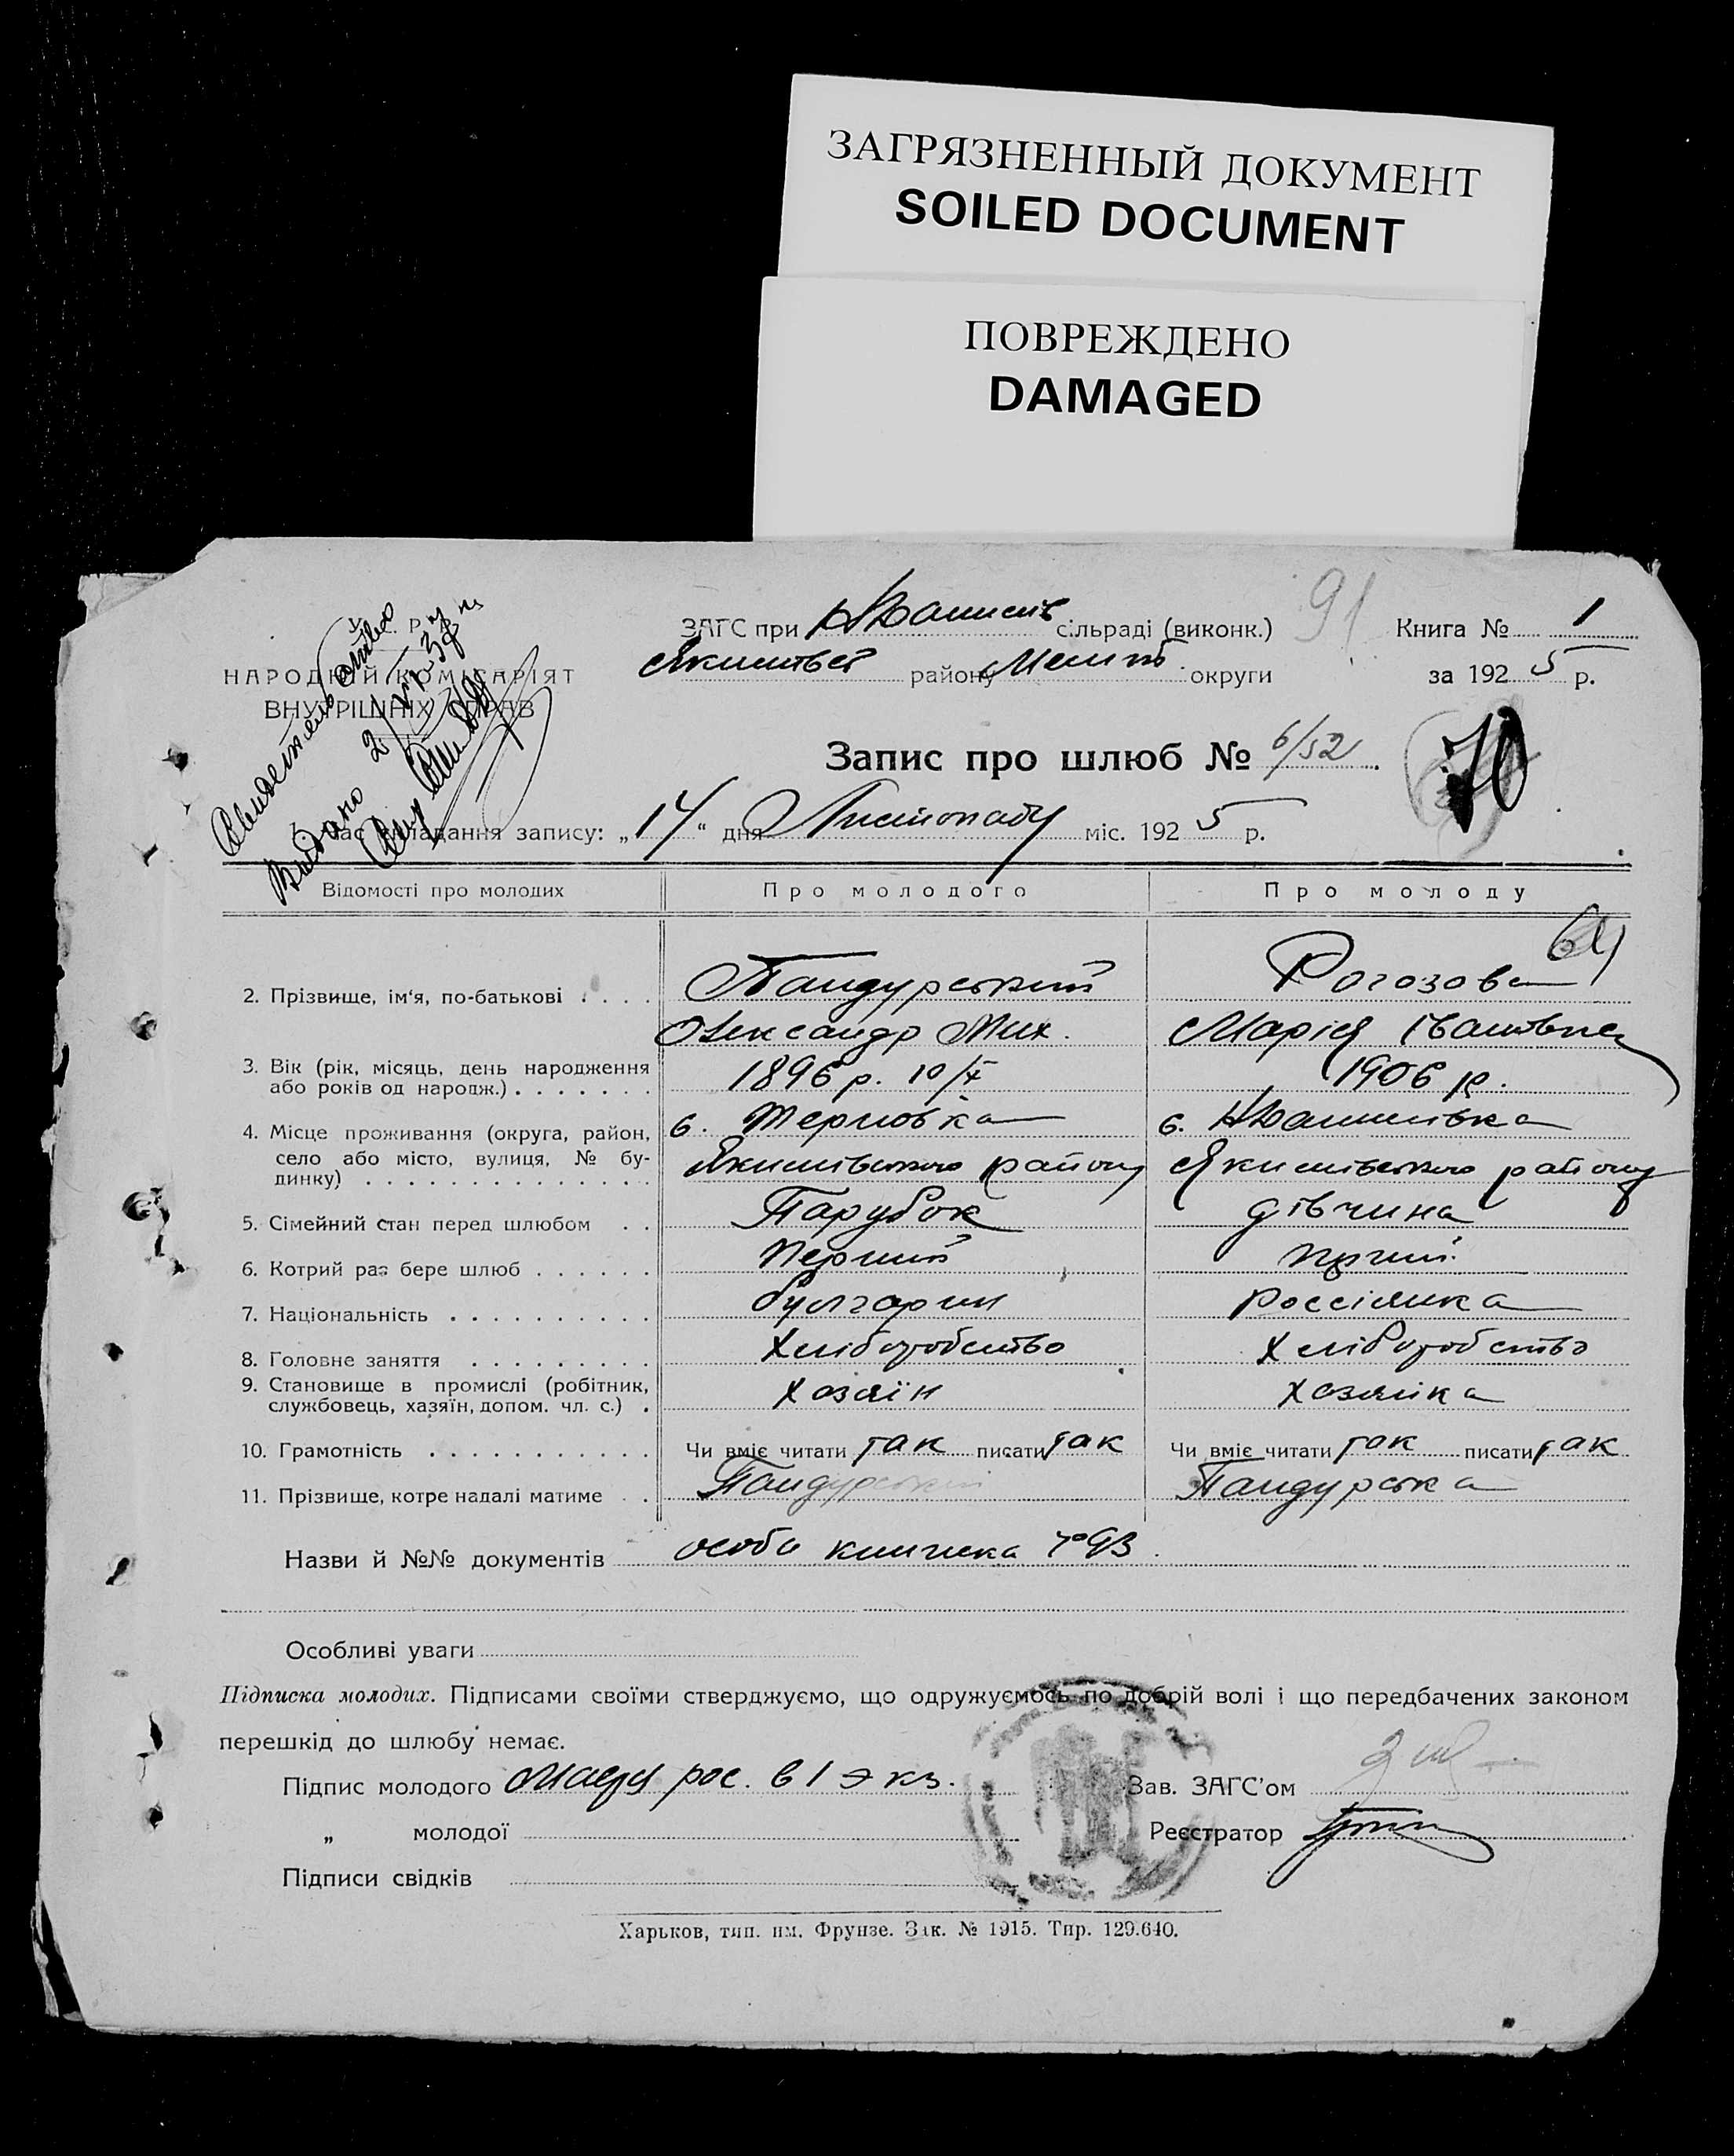 ЗАГРЯЗНЕННЫЙ ДОКУМЕНТ
SOILED DOCUMENT
ПОВРЕЖДЕНО
DAMAGED
91
ЗАГС при сільраді (виконк.)
Книга № 1
району Мелит. округи
за 1925 р.
НАРОДНІЙ КОМІСАРІЯТ
ВНУТРІШНІХ СПРАВ
Видано
Запис про шлюб № 6/52.
70
запису: „14“ дня Листопаду міс. 1925 р.
Відомості про молодих
Про молодого
Про молоду
64
2. Прізвище, ім'я, по-батькові . . . .
Пандурський
Рогозова
Олександр Мих.
Марія Івановна
3. Вік (рік, місяць, день народження
або років од народж.) . . . . . . .
1896 р. 10/X
1906 р.
4. Місце проживання (округа, район,
село або місто, вулиця, № бу-
динку) . . . . . . . . . . . . . .
с. Терновка
Якимівського району
с.
Якимівського району
5. Сімейний стан перед шлюбом . .
Парубок
дівчина
6. Котрий раз бере шлюб . . . . . .
Перший
7. Національність . . . . . . . . . .
булгарин
россіянка
8. Головне заняття . . . . . . . . .
Хліборобство
Хліборобство
9. Становище в промислі (робітник,
службовець, хазяїн, допом. чл. с.) .
Хозяїн
Хозяйка
10. Грамотність . . . . . . . . . . .
Чи вміє читати так писати так
Чи вміє читати так писати так
11. Прізвище, котре надалі матиме . .
Пандурський
Пандурська
Назви й №№ документів особо книжка № 93.
Особливі уваги
Підписка молодих. Підписами своїми стверджуємо, що одружуємось по добрій волі і що передбачених законом
перешкід до шлюбу немає.
Підпис молодого рос. в 1 экз.
Зав. ЗАГС'ом
„ молодої
Реєстратор
Підписи свідків
Харьков, тип. им. Фрунзе. Зак. № 1915. Тир. 129.640.